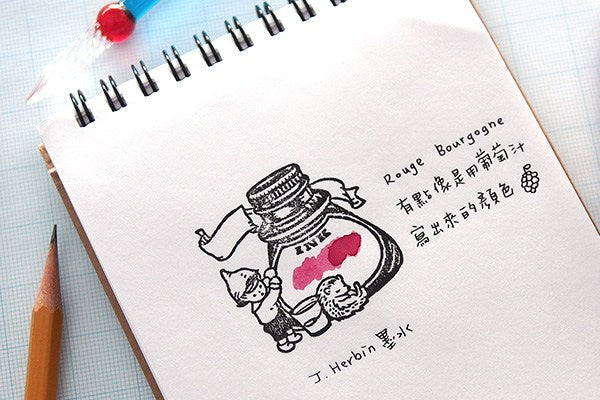 Rouge Bourgogne
有點像是用葡萄汁
寫出來的顏色
INK
J. Herbin 墨水